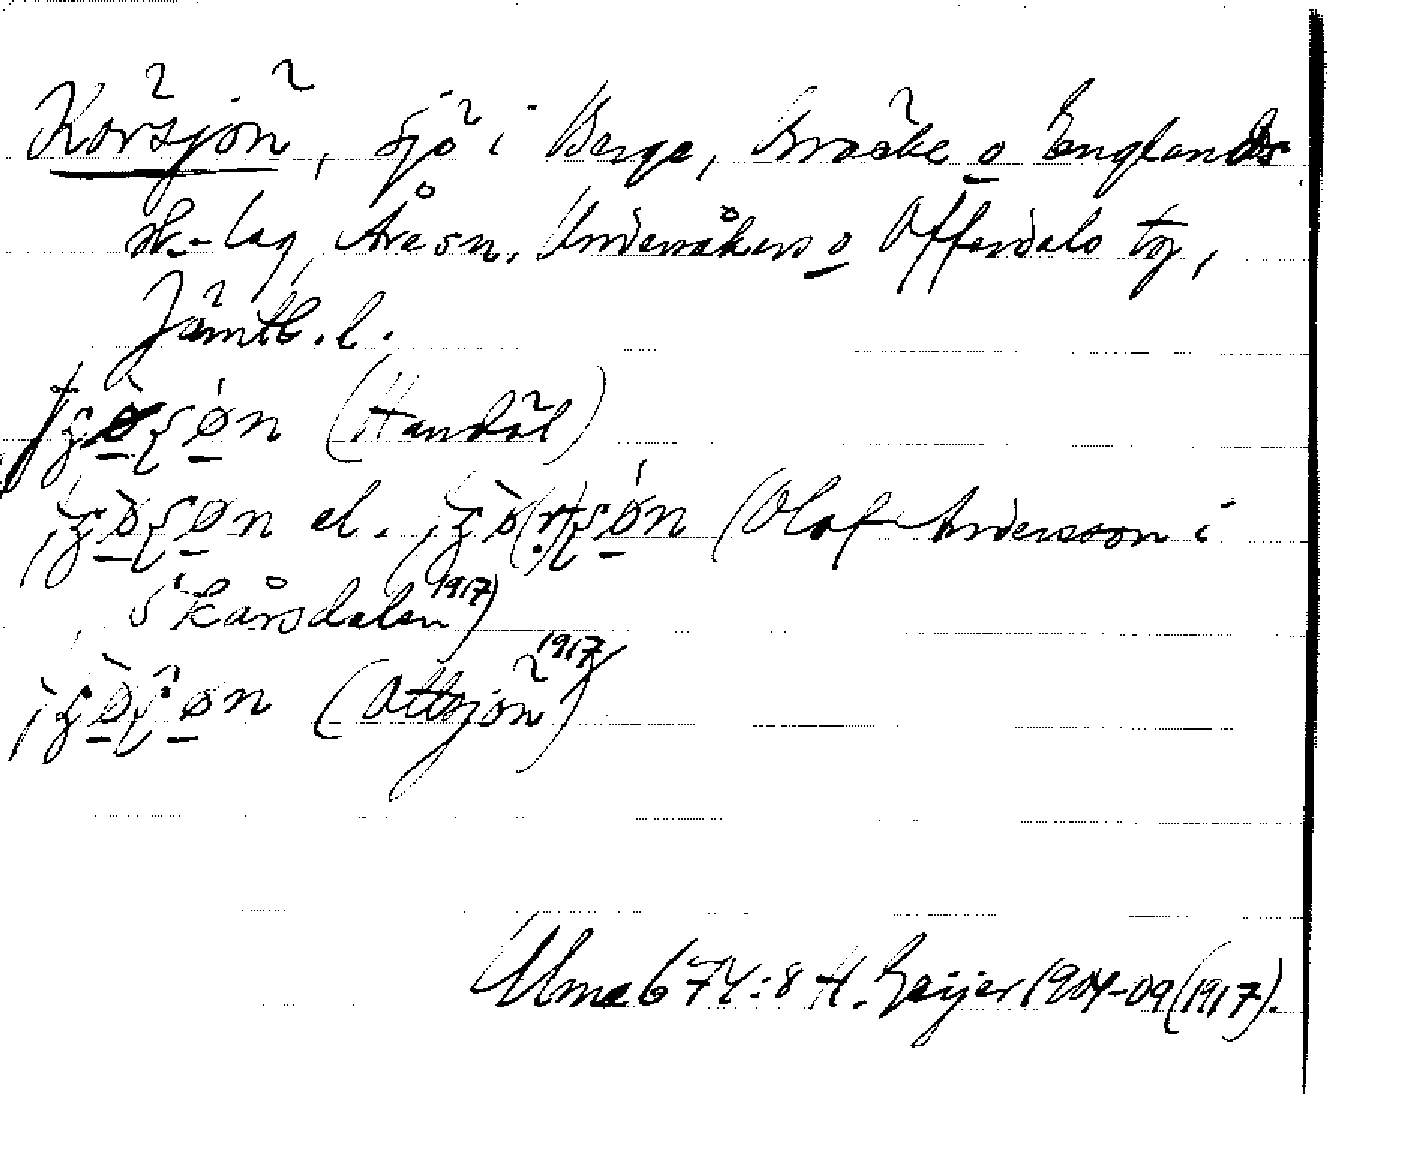 Korsjön, sjö i Berge, Bräcke o Englands
sk.-lag, Åre sn, Undersåkers o Offerdals tg,
Jämtl. l.
(Handöl)
el. (Olof Andersson i
Skårsdalen 1917)
(Ottsjön 1917)
Ulma 674:8 H. Geijer 1904-09 (1917).